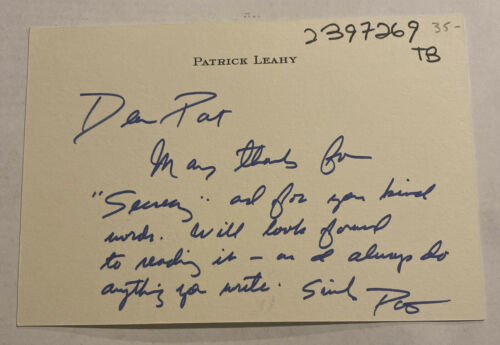 2397269 35-
TB
PATRICK LEAHY
Dear Pat
Many thanks for
"Secrecy" and for your kind
words. Will look forward
to reading it - as I always do
anything you write. Sincerely
Pat